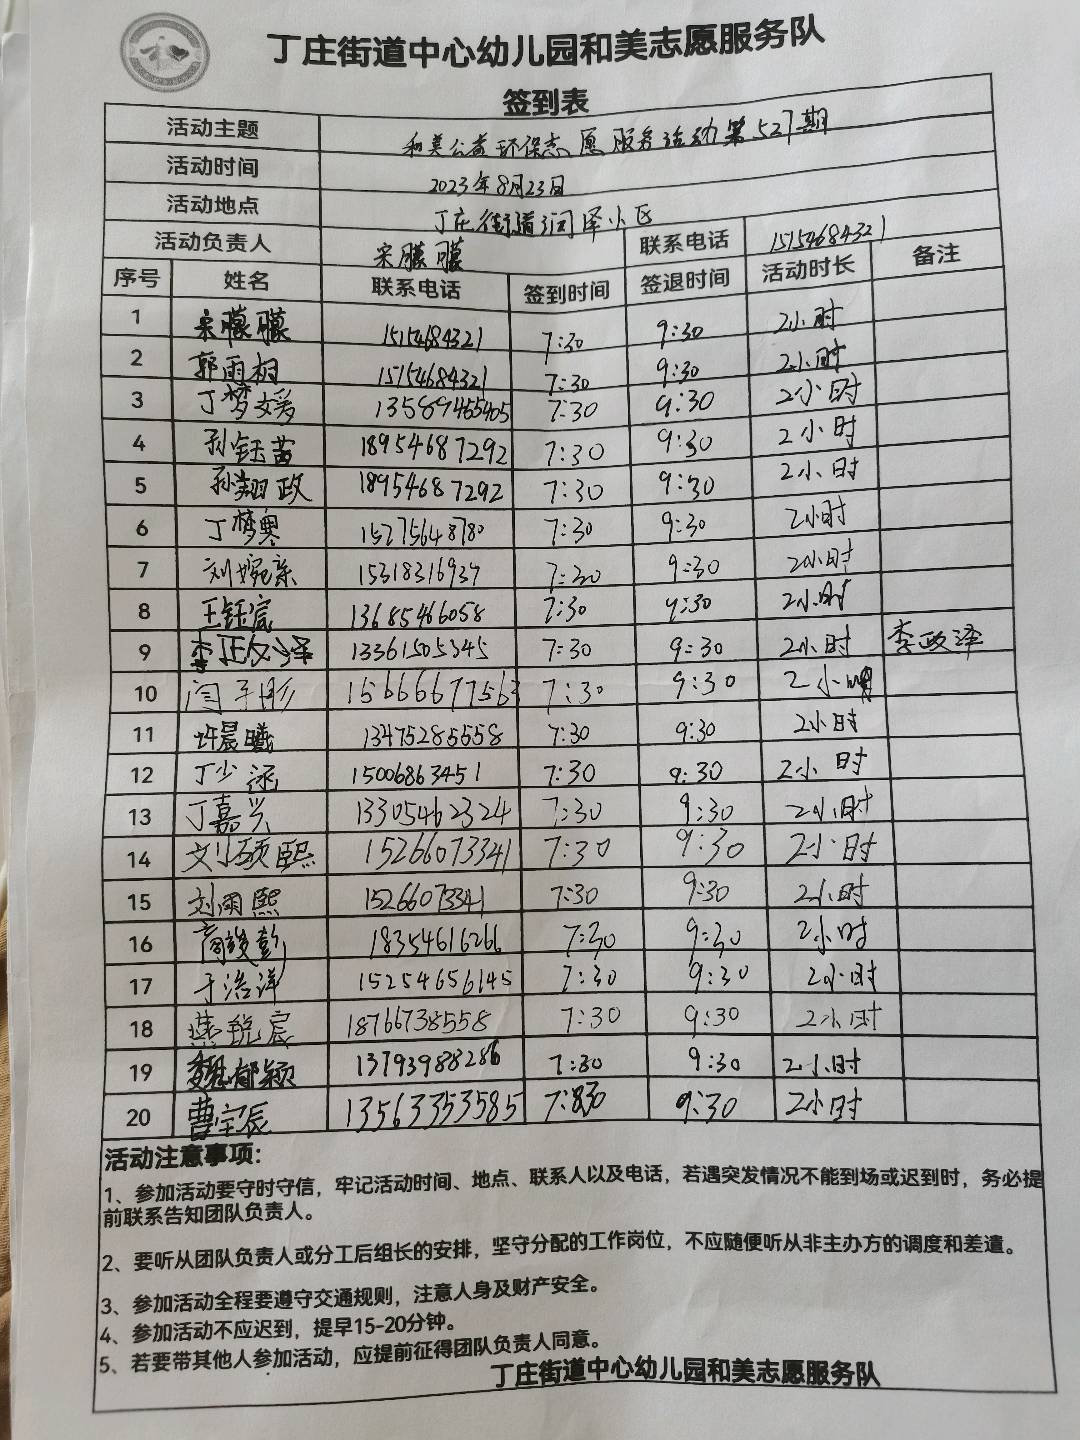 丁庄街道中心幼儿园和美志愿服务队
签到表
活动主题 和美公益环保志愿服务活动第527期
活动时间 2023年8月23日
活动地点 丁庄街道润泽小区
活动负责人 宋朦朦 联系电话 15154684321
序号 姓名 联系电话 签到时间 签退时间 活动时长 备注
1 宋朦朦 15154684321 7:30 9:30 2小时
2 郭雨桐 15154684321 7:30 9:30 2小时
3 丁梦媛 13589465405 7:30 9:30 2小时
4 孙钰茜 18954687292 7:30 9:30 2小时
5 孙翊政 18954687292 7:30 9:30 2小时
6 丁梦 15275648780 7:30 9:30 2小时
7 刘婉 15318316937 7:30 9:30 2小时
8 王钰宸 13685466058 7:30 9:30 2小时
9 李政泽 13361505345 7:30 9:30 2小时 李政泽
10 闫子彤 15666677563 7:30 9:30 2小时
11 许晨曦 13475285558 7:30 9:30 2小时
12 丁少涵 15006863451 7:30 9:30 2小时
13 丁嘉兴 13305462324 7:30 9:30 2小时
14 刘硕熙 15266073341 7:30 9:30 2小时
15 刘雨熙 15266073341 7:30 9:30 2小时
16 商竣彭 18354616266 7:30 9:30 2小时
17 于浩洋 15254656145 7:30 9:30 2小时
18 燕锐宸 18766738558 7:30 9:30 2小时
19 魏郁颖 13793988286 7:30 9:30 2小时
20 曹宇辰 13563353585 7:30 9:30 2小时
活动注意事项:
1、参加活动要守时守信，牢记活动时间、地点、联系人以及电话，若遇突发情况不能到场或迟到时，务必提
前联系告知团队负责人。
2、要听从团队负责人或分工后组长的安排，坚守分配的工作岗位，不应随便听从非主办方的调度和差遣。
3、参加活动全程要遵守交通规则，注意人身及财产安全。
4、参加活动不应迟到，提早15-20分钟。
5、若要带其他人参加活动，应提前征得团队负责人同意。
丁庄街道中心幼儿园和美志愿服务队